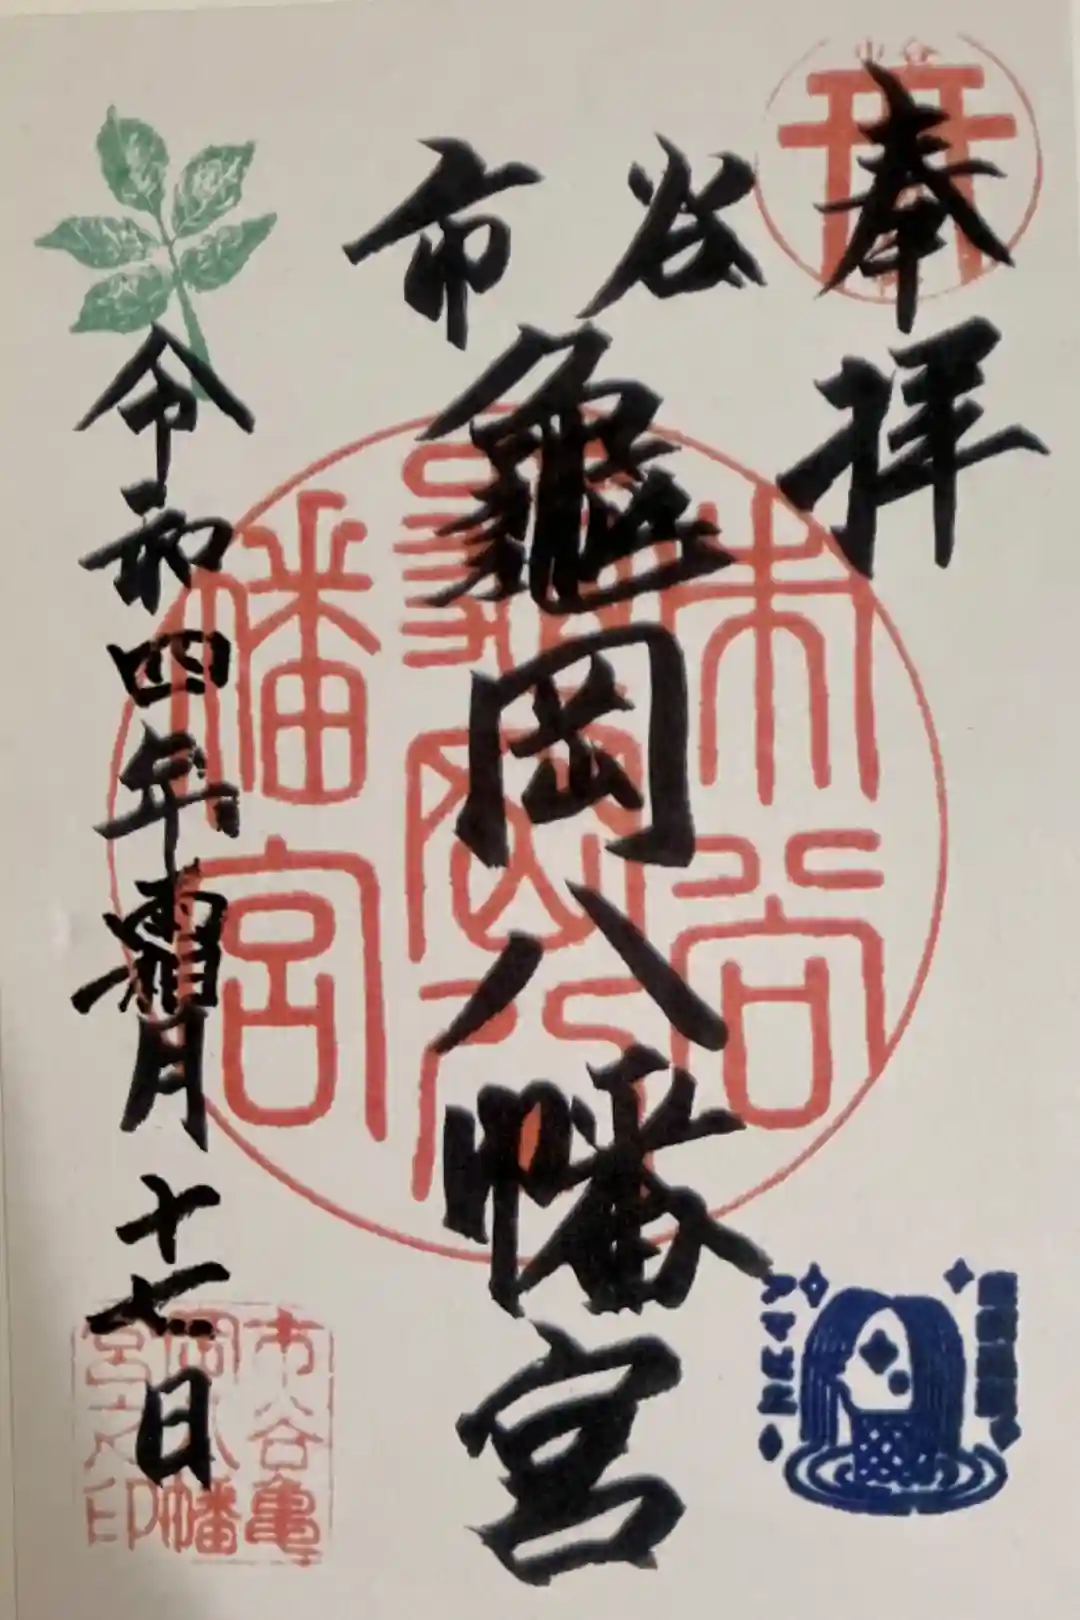 奉拝
市谷
亀岡八幡宮
令和四年霜月十七日
市谷亀岡八幡宮
市谷亀
岡八幡
宮之印